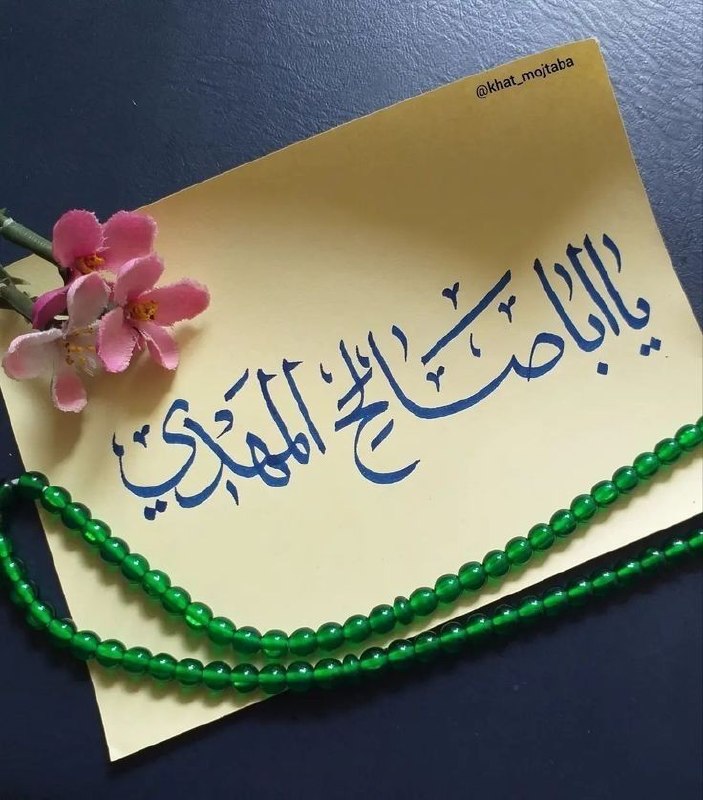 @khat_mojtaba
يا اباصالح المهدي